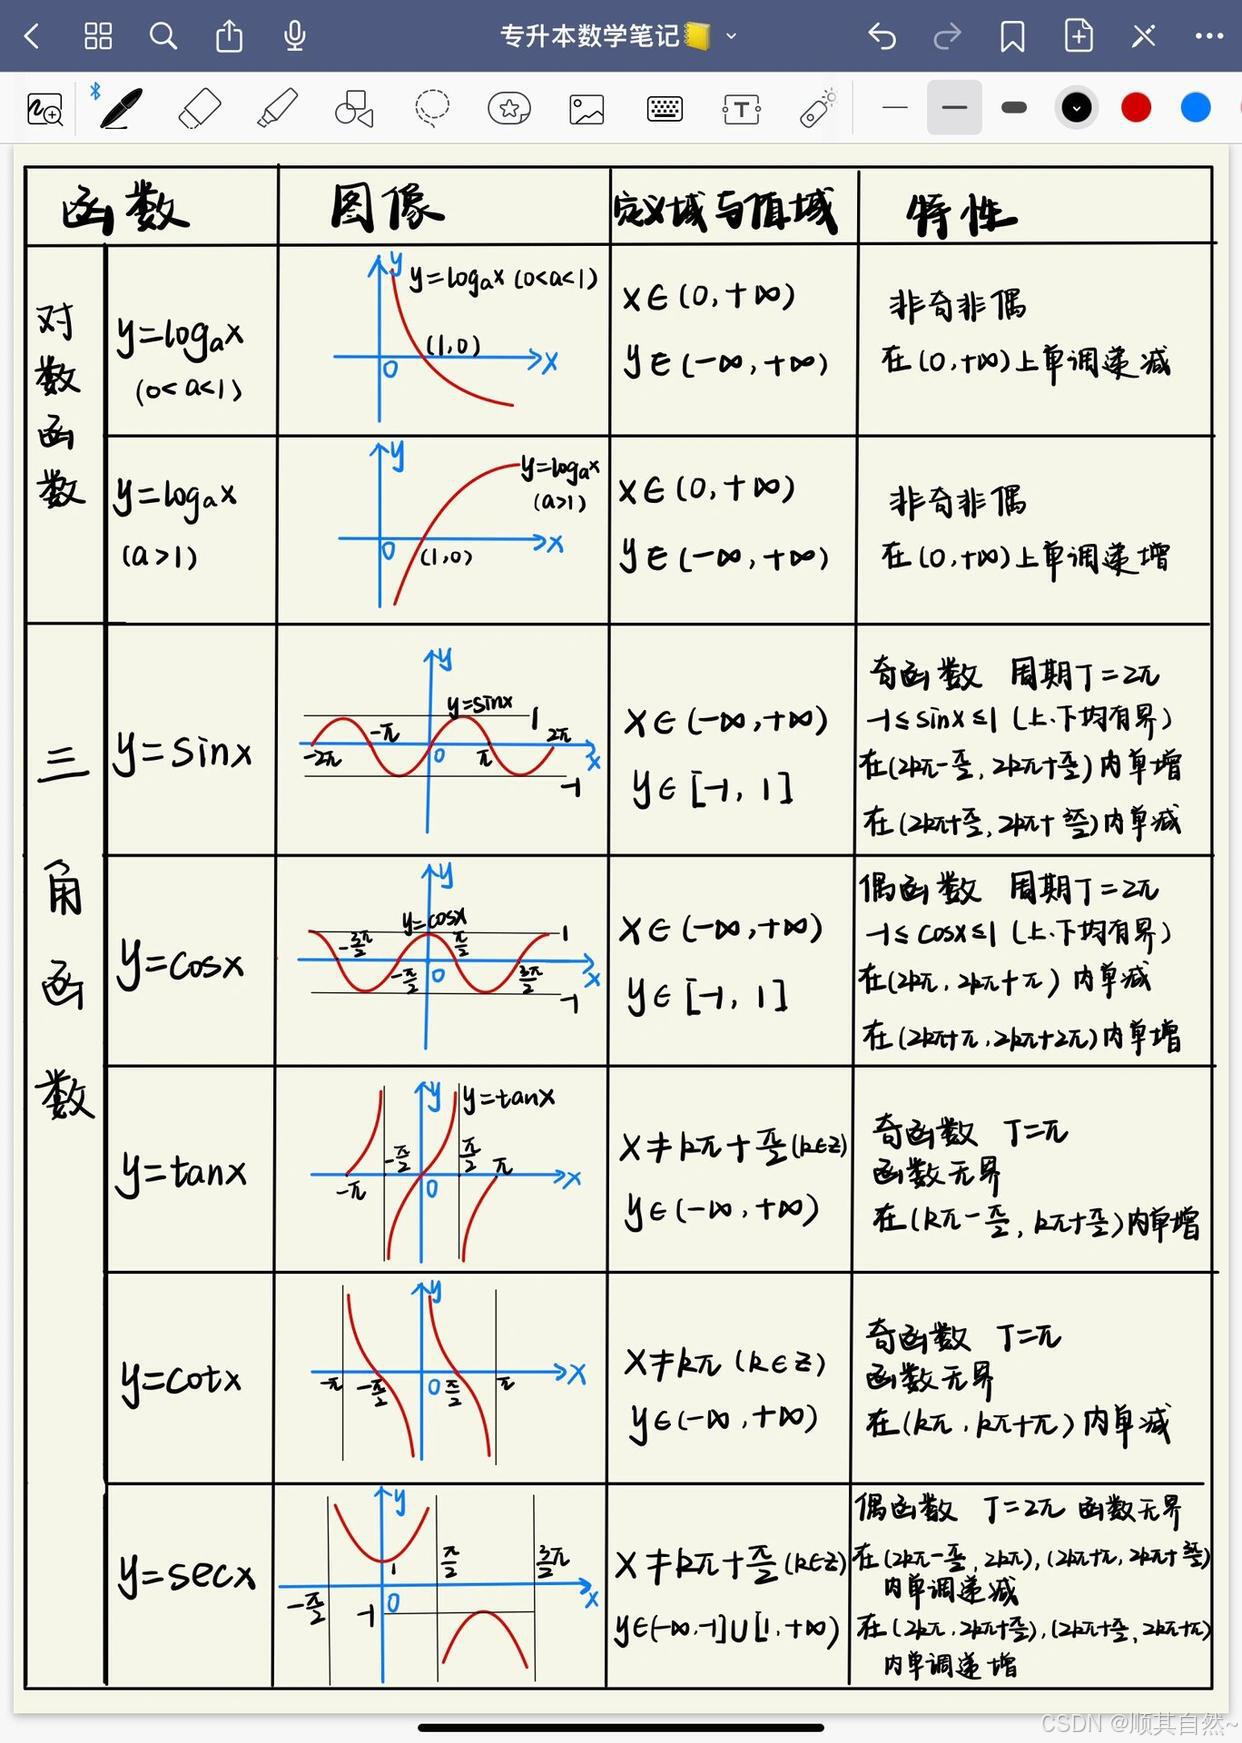 专升本数学笔记
函数 图像 定义域与值域 特性
对数函数
y=logₐx
(0<a<1)
y
y=logₐx (0<a<1)
(1,0)
0
x
x∈(0,+∞)
y∈(-∞,+∞)
非奇非偶
在(0,+∞)上单调递减
y=logₐx
(a>1)
y
y=logₐx
(a>1)
0
(1,0)
x
x∈(0,+∞)
y∈(-∞,+∞)
非奇非偶
在(0,+∞)上单调递增
三角函数
y=sinx
y
y=sinx
1
-π
2π
-2π
0
π
x
-1
x∈(-∞,+∞)
y∈[-1,1]
奇函数 周期T=2π
-1≤sinx≤1(上、下均有界)
在(2kπ-π/2,2kπ+π/2)内单增
在(2kπ+π/2,2kπ+3π/2)内单减
y=cosx
y
y=cosx
1
-3π/2
π/2
-π/2
0
3π/2
x
-1
x∈(-∞,+∞)
y∈[-1,1]
偶函数 周期T=2π
-1≤cosx≤1(上、下均有界)
在(2kπ,2kπ+π)内单减
在(2kπ+π,2kπ+2π)内单增
y=tanx
y
y=tanx
-π/2
π/2
π
-π
0
x
x≠kπ+π/2(k∈Z)
y∈(-∞,+∞)
奇函数 T=π
函数无界
在(kπ-π/2,kπ+π/2)内单增
y=cotx
y
x
-π
-π/2
0
π/2
π
x≠kπ(k∈Z)
y∈(-∞,+∞)
奇函数 T=π
函数无界
在(kπ,kπ+π)内单减
y=secx
y
1
π/2
3π/2
-π/2
-1
0
x
x≠kπ+π/2(k∈Z)
y∈(-∞,-1]∪[1,+∞)
偶函数 T=2π 函数无界
在(2kπ-π/2,2kπ),(2kπ+π,2kπ+3π/2)
内单调递减
在(2kπ,2kπ+π/2),(2kπ+π/2,2kπ+π)
内单调递增
CSDN @顺其自然~